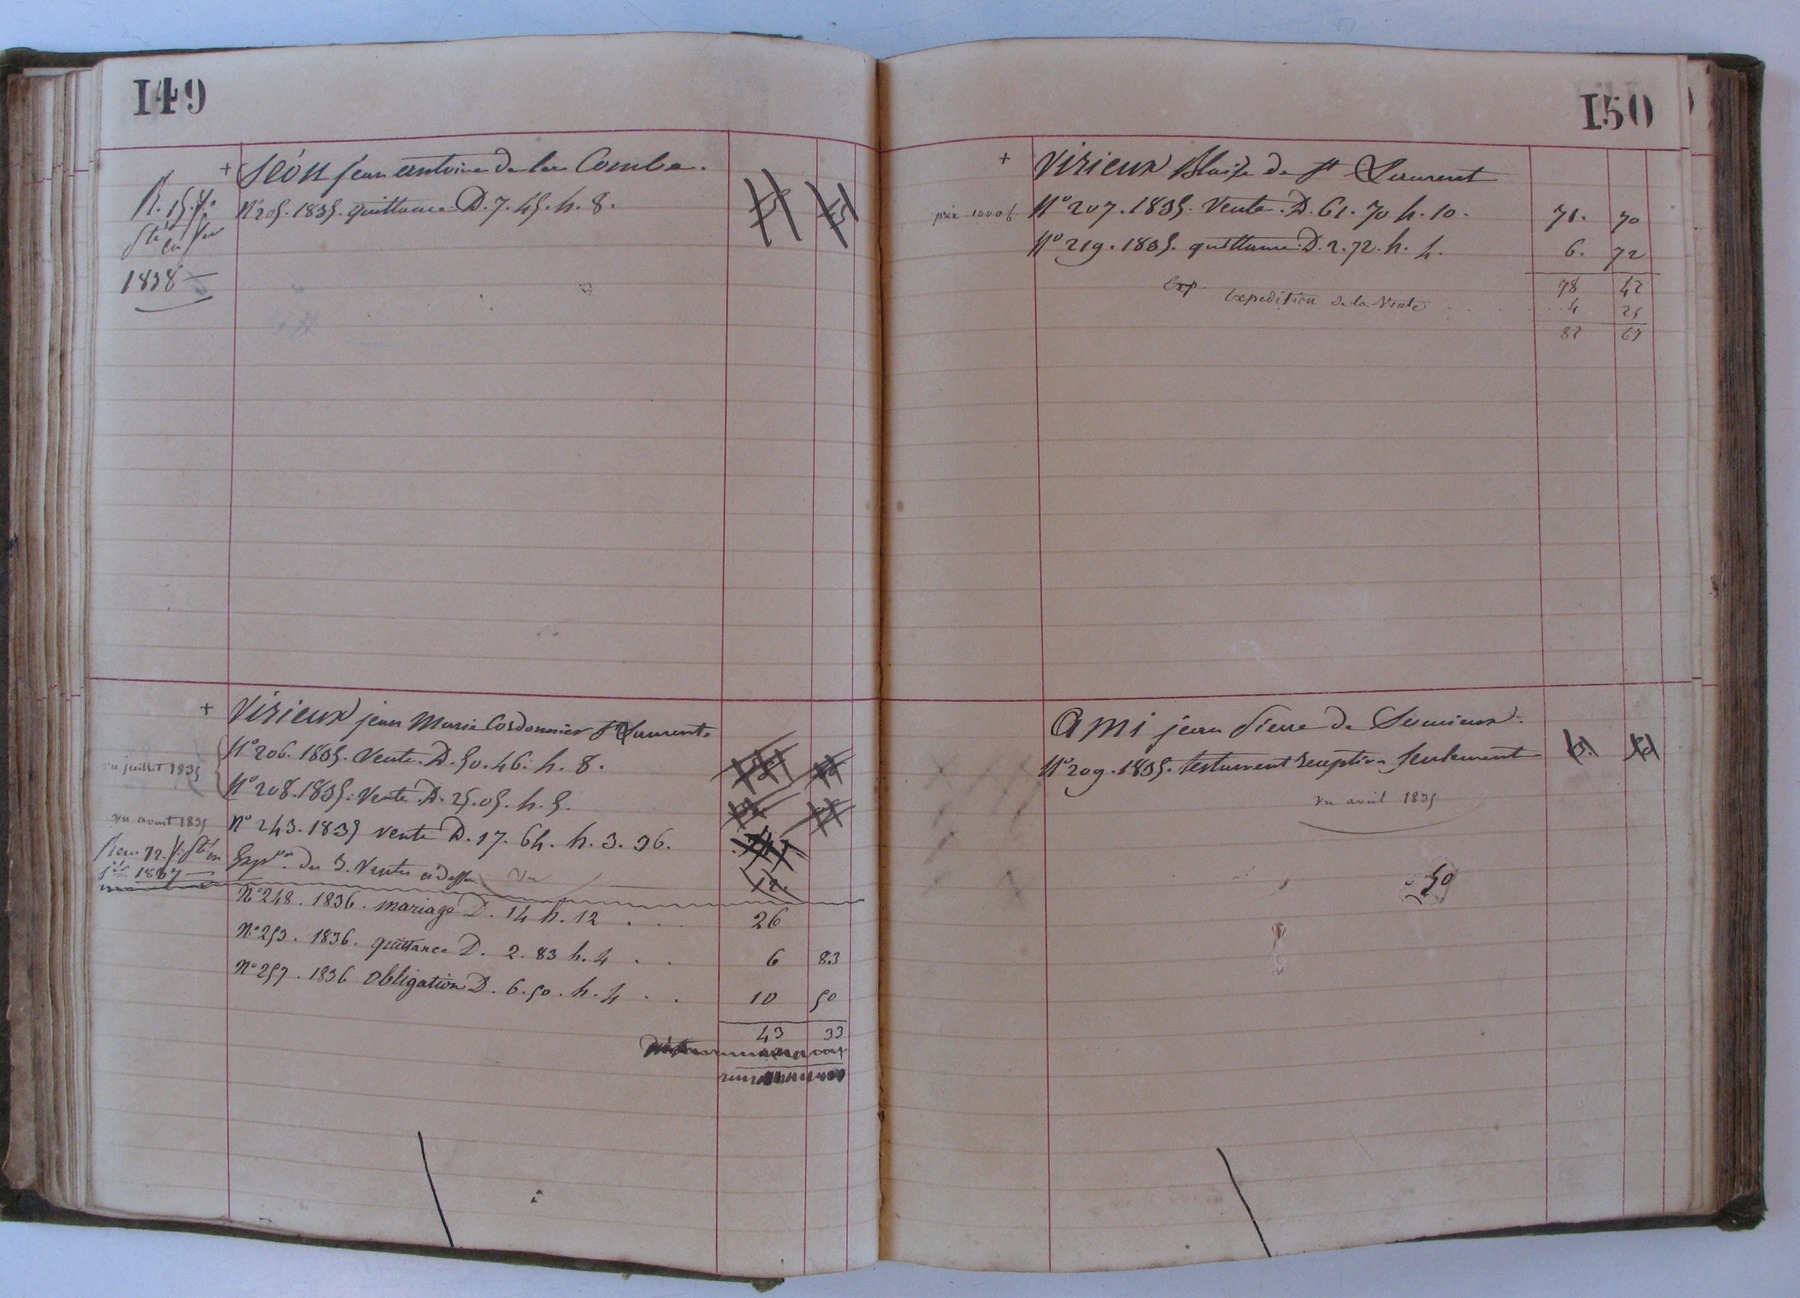 149
+ Séon jean antoine de la Combe.
R. 15.
N° 205. 1835. quittance D. 7. 45. h. 8.
1838
+ Virieux jean Marie Cordonnier St Laurent
N° 206. 1835. Vente. D. 50. 46. h. 8.
vu juillet 1835
N° 208. 1835. Vente. D. 25. 05. h. 5.
vu aout 1835
N° 243. 1835 vente D. 17. 64. h. 3. 36.
Exp^on des 3. Ventes ci dessus 12.
N° 248. 1836. mariage D. 14 h. 12 . . . 26
N° 253. 1836. quittance D. 2. 83 h. 4 . . 6 83
N° 257. 1836 Obligation D. 6. 50. h. 4 . . 10 50
43 33
150
+ Virieux Blaise de St Laurent
prix 1000 f N° 207. 1835. Vente. D. 61. 70 h. 10. 71. 70
N° 219. 1835. quittance. D. 2. 72. h. 4. 6. 72
78 42
Exp Expedition de la Vente 4 25
82 67
Ami jean Pierre de
N° 209. 1835. testament reception seulement
vu avril 1835
50